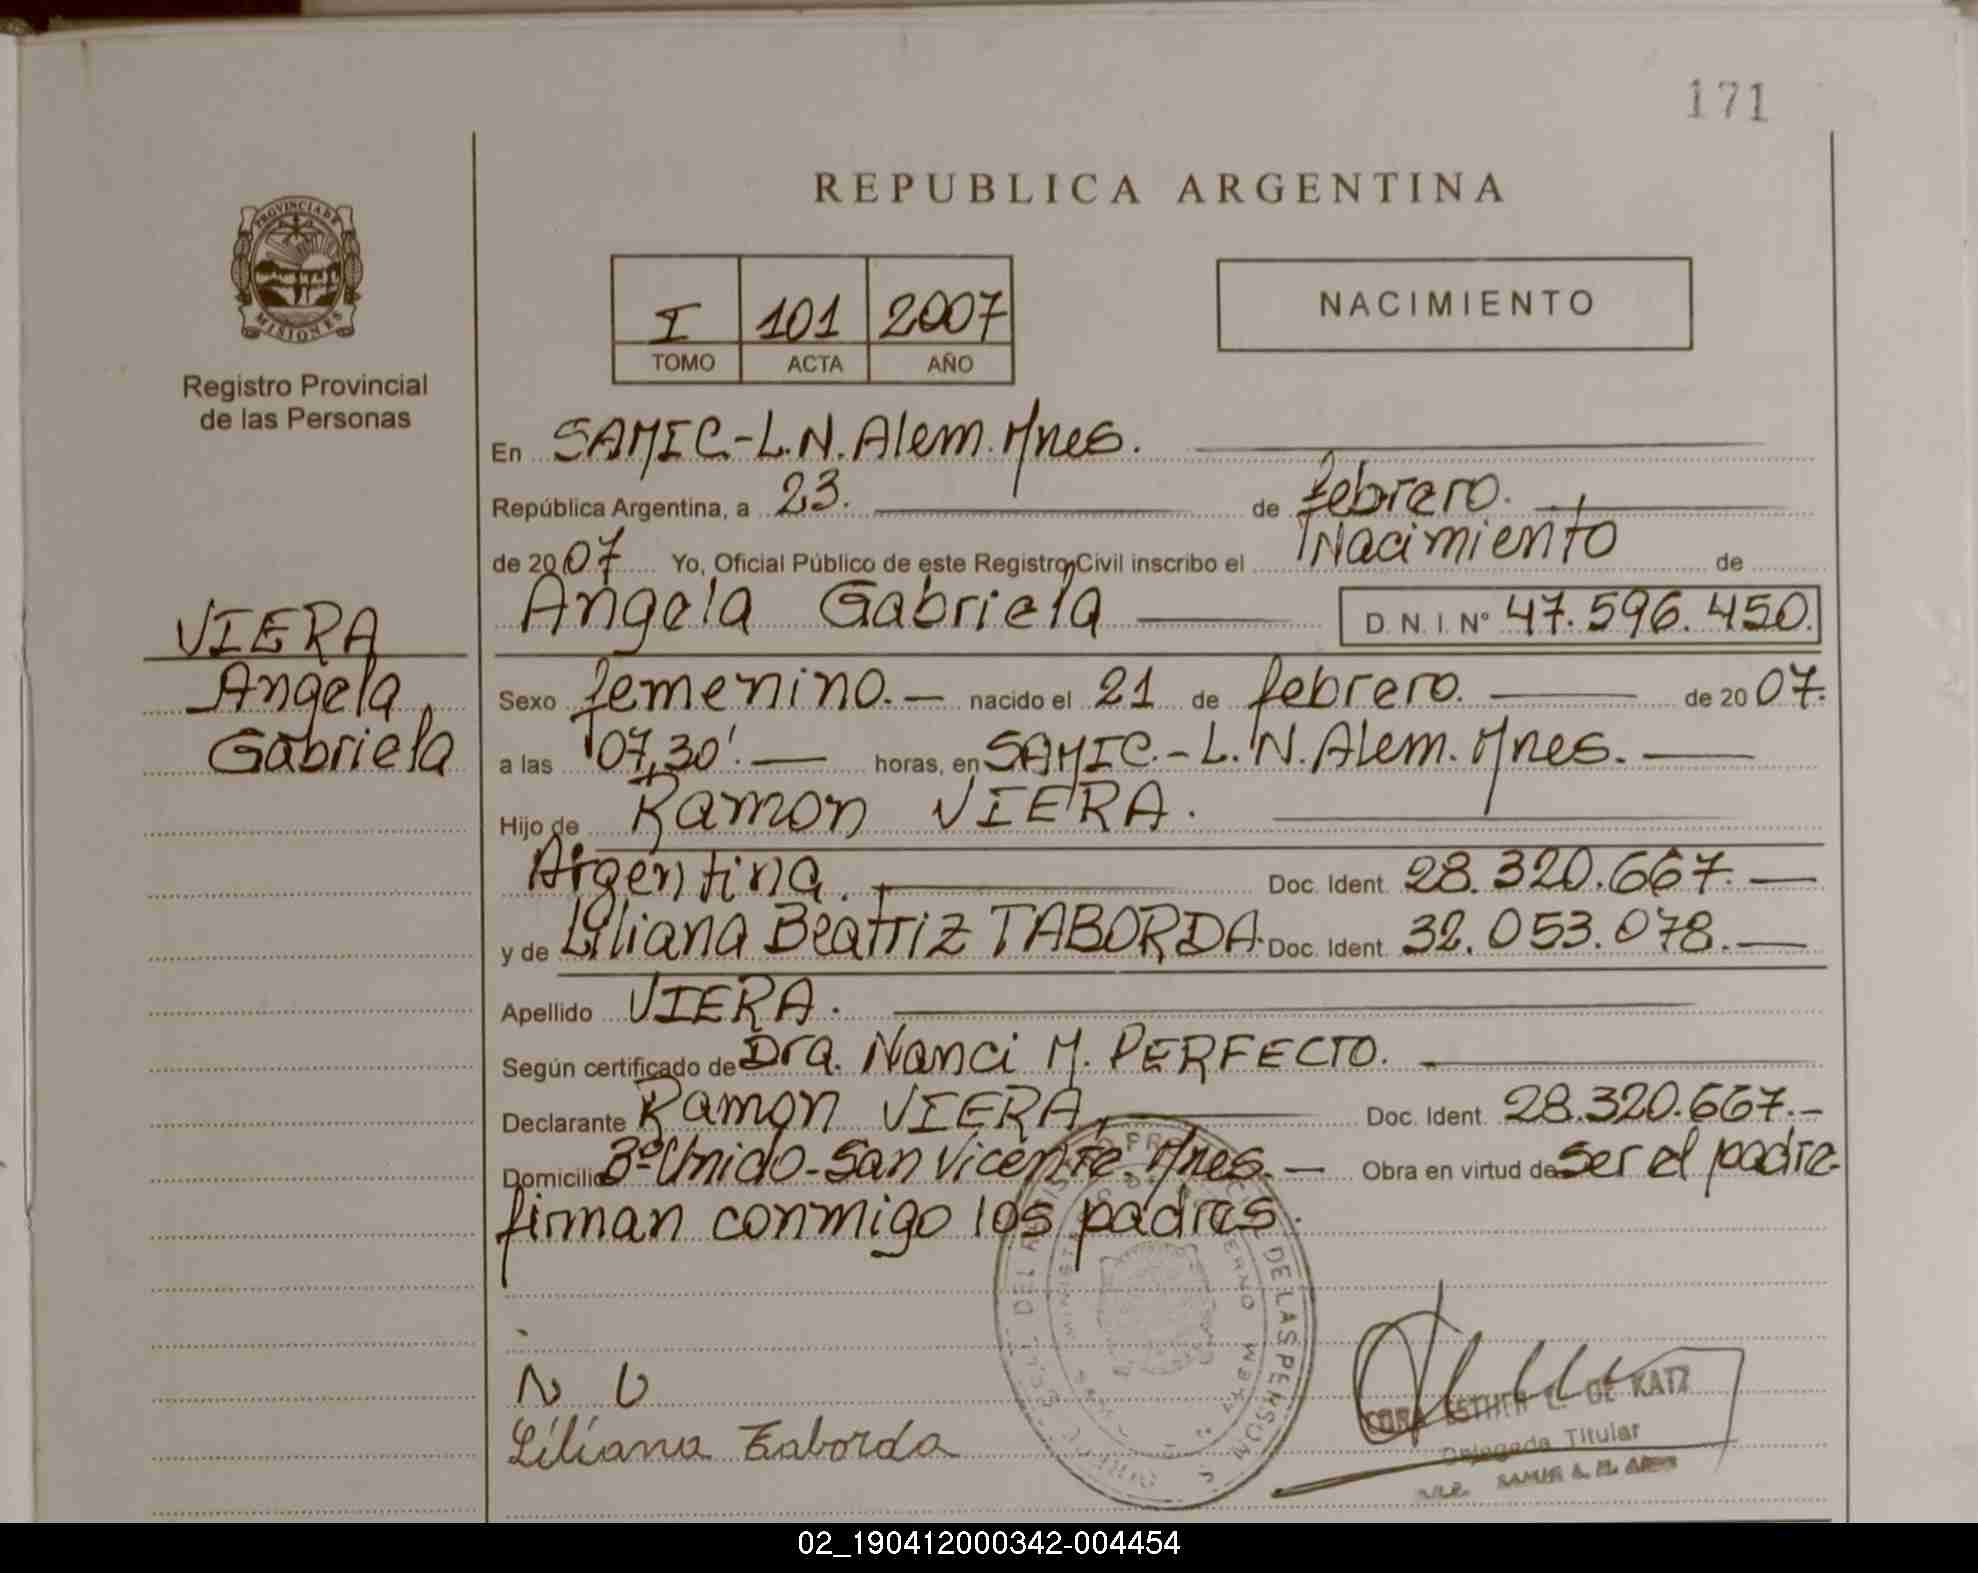 171
REPUBLICA ARGENTINA
PROVINCIA DE
MISIONES
Registro Provincial
de las Personas
I 101 2007
TOMO ACTA AÑO
NACIMIENTO
En SAMIC-L.N.Alem.Mnes.
República Argentina, a 23. de febrero.
de 2007 Yo, Oficial Público de este Registro Civil inscribo el Nacimiento de
Angela Gabriela D.N.I. Nº 47.596.450.
VIERA
Angela
Gabriela
Sexo femenino.- nacido el 21 de febrero. de 2007.
a las 07,30'. horas, en SAMIC.-L.N.Alem.Mnes.
Hijo de Ramon VIERA.
Argentina. Doc. Ident. 28.320.667.
y de Liliana Beatriz TABORDA. Doc. Ident. 32.053.078.
Apellido VIERA.
Según certificado de Dra. Nanci M. PERFECTO.
Declarante Ramon VIERA, Doc. Ident. 28.320.667.-
Domicilio Bº Unido-San Vicente.Mnes.- Obra en virtud de ser el padre.
firman conmigo los padres.
Liliana Taborda
CORA ESTHER L. DE KATZ
Delegada Titular
02_190412000342-004454